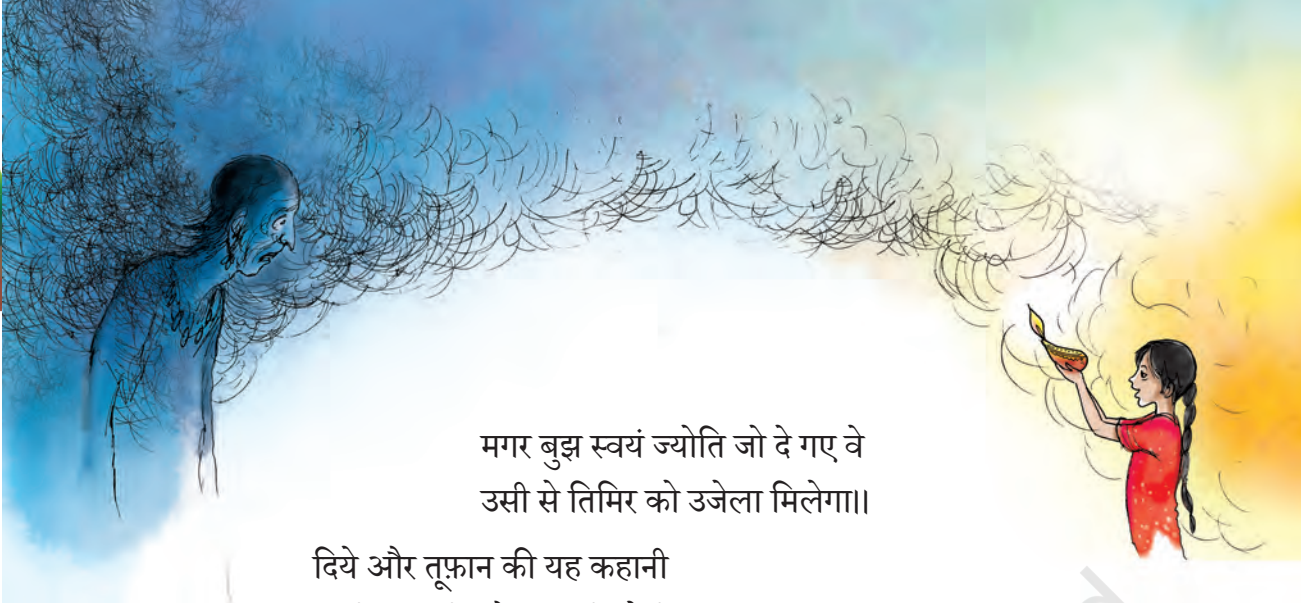 मगर बुझ स्वयं ज्योति जो दे गए वे
उसी से तिमिर को उजेला मिलेगा॥
दिये और तूफ़ान की यह कहानी